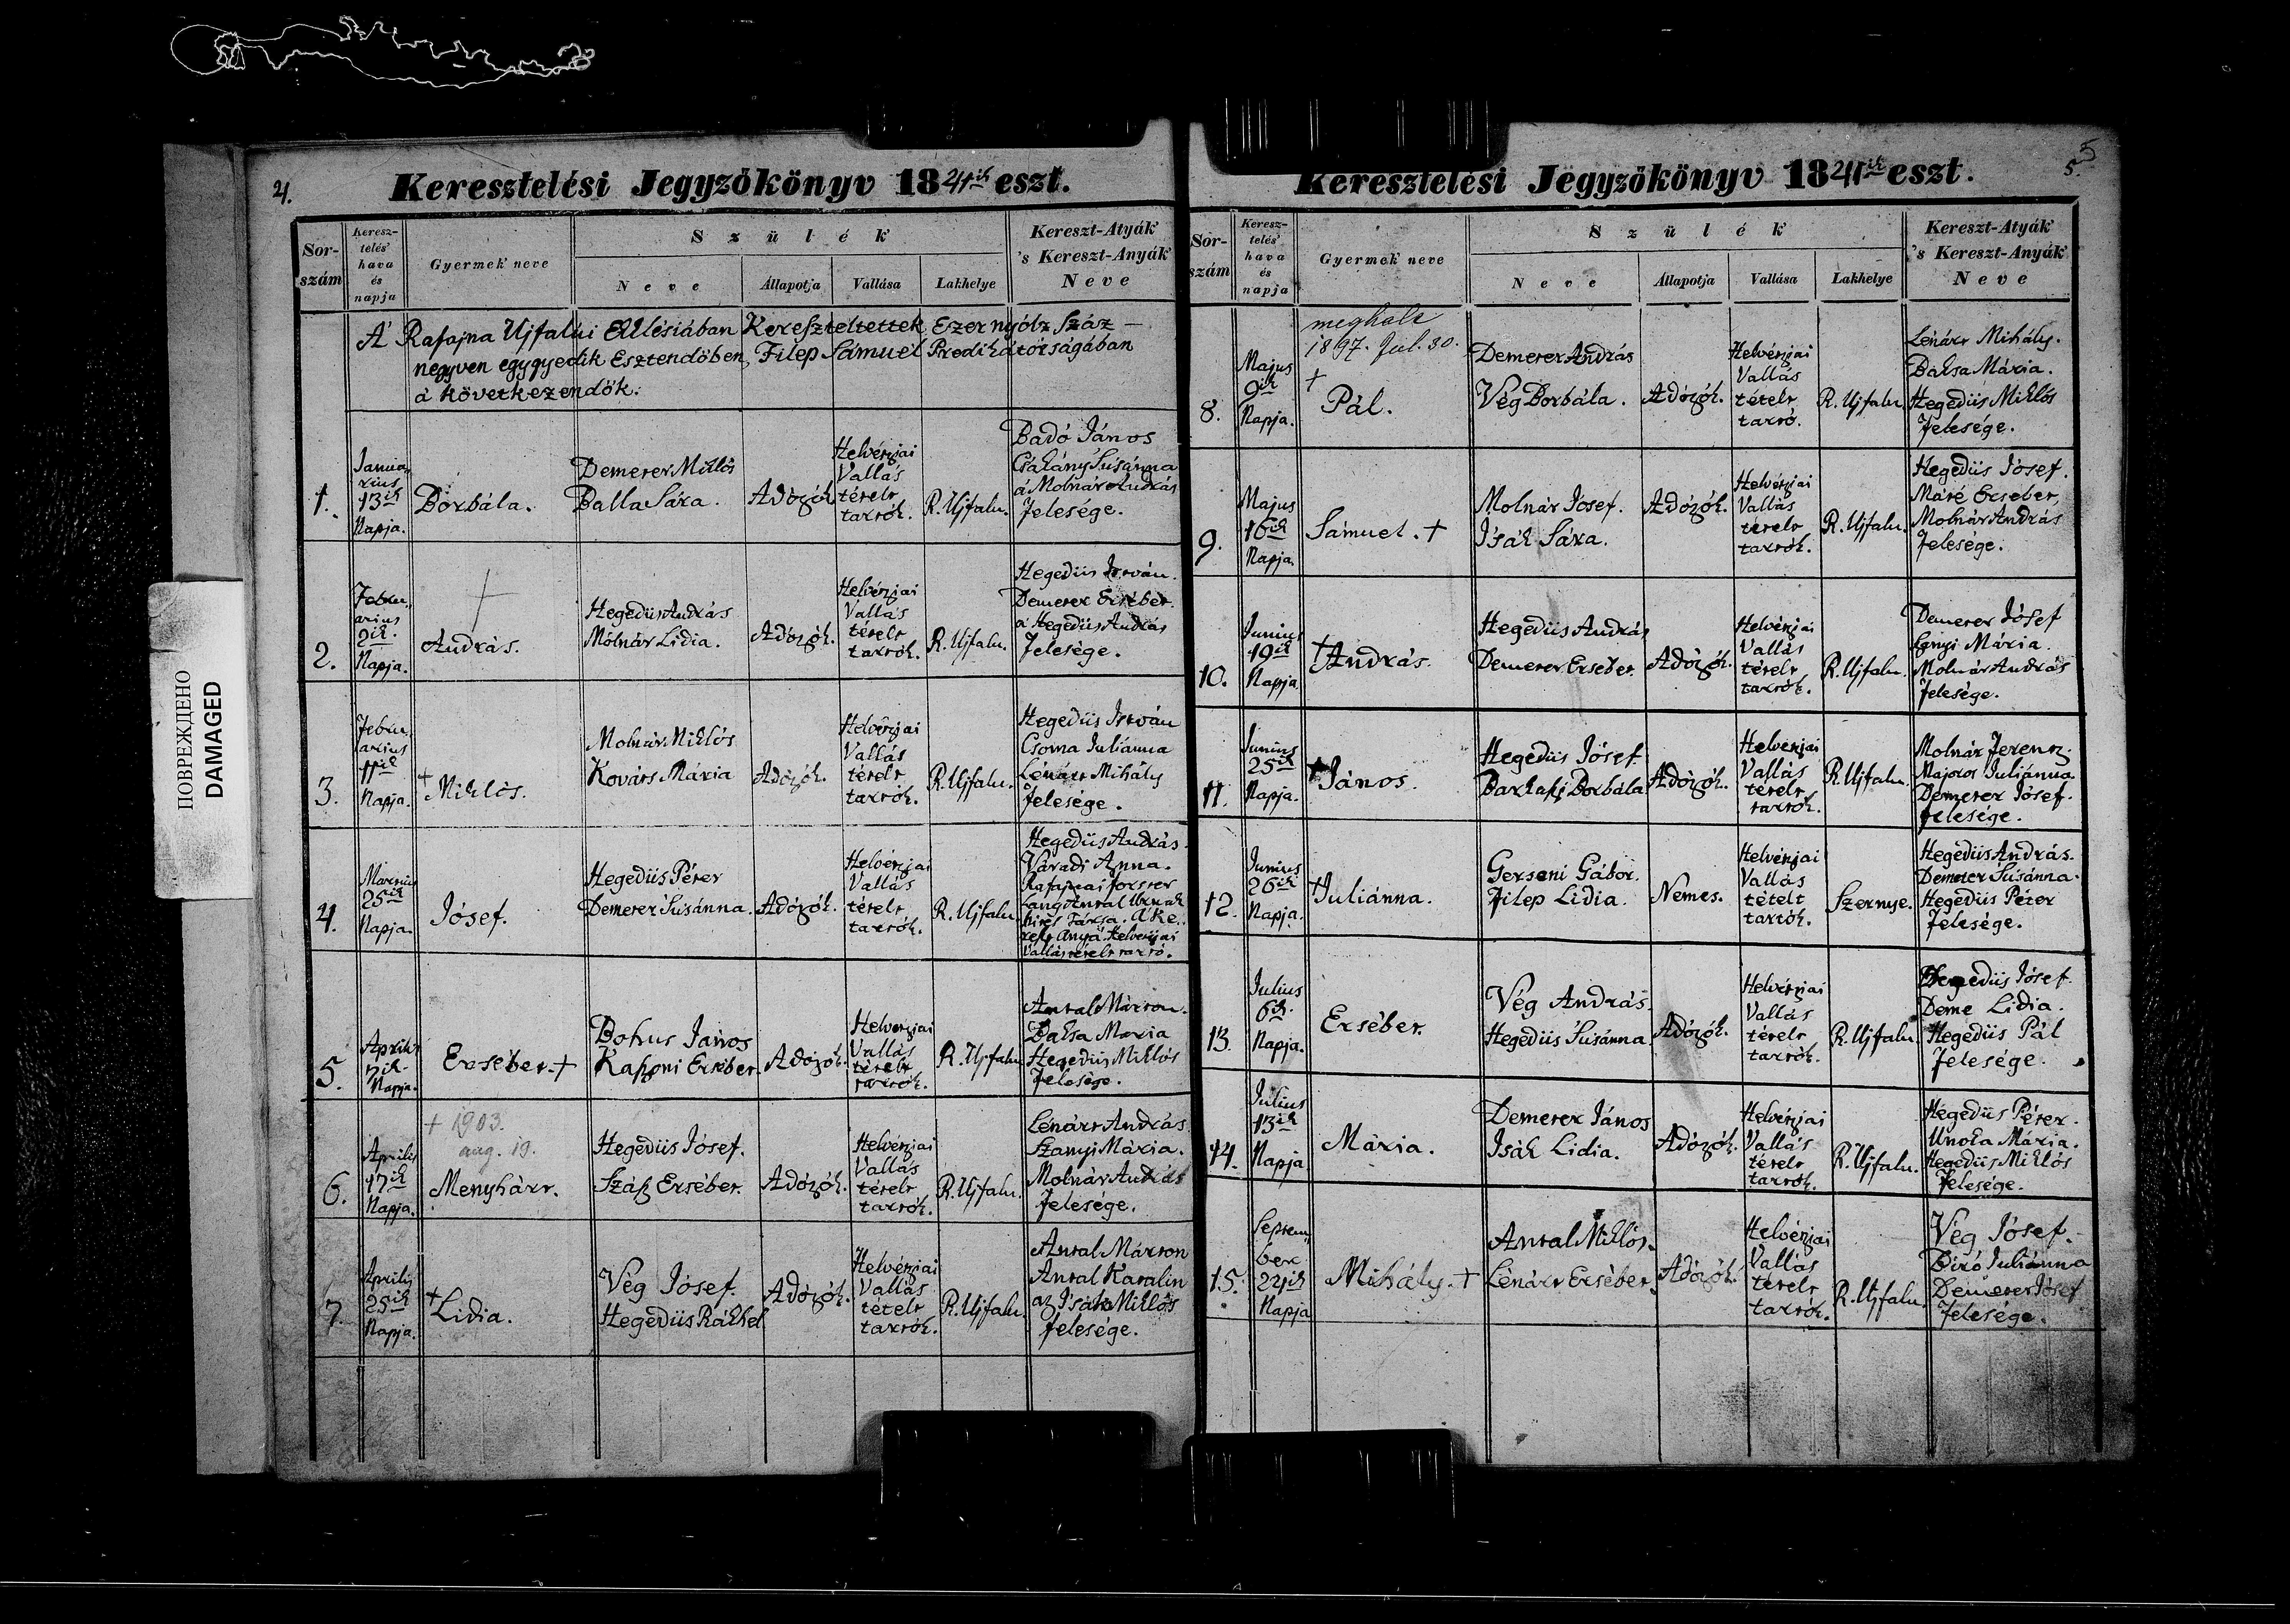 4.
Keresztelési Jegyzökönyv 1841ik eszt.
Sor-szám
Keresz-telés' hava és napja
Gyermek' neve
Szülék'
Neve
Állapotja
Vallása
Lakhelye
Kereszt-Atyák' 's Kereszt-Anyák' Neve
A' Rafajna Ujfalui Ekklésiában Kereszteltettek Ezernyóltz Száz –
negyven egygyedik Esztendőben, Filep Sámuel Predikátorságában
a' következendők:
1.
Januá,
rius
13ik
Napja.
Borbála.
Demeter Miklós
Balla Sára.
Adózók
Helvétziai
Vallás
tételt
tartók.
R. Ujfalu.
Badó János
Csakány Susánna
a' Molnár András
felesége.
2.
Febru,
arius
2ik.
Napja.
†
András.
Hegedüs András
Mólnár Lidia.
Adózók.
Helvétziai
Vallás
tételt
tartók.
R. Ujfalu.
Hegedüs István.
Demeter Ersébet.
a Hegedüs András
felesége.
3.
Febru,
arius
11ik
Napja.
† Miklós.
Molnár Miklós
Kováts Mária
Adózók.
Helvétziai
Vallás
tételt
tartók.
R. Ujfalu.
Hegedüs István
Csoma Juliánna
Lénárt Mihály
felesége.
4.
Martius
25ik
Napja.
Jósef.
Hegedüs Péter
Demeter Susánna.
Adózók.
Helvétziai
Vallás
tételt
tartók.
R. Ujfalu.
Hegedüs András.
Váradi Anna.
Rafajnai forster
Lang Antal Urnak
hites Társa. A Ke,
reszt anya Helvétziai
Vallás tételt tartó.
5.
Aprilis
7ik.
Napja.
Ersébet. †
Bohus János
Kaszoni Ersébet.
Adózók.
Helvétziai
Vallás
tételt
tartók.
R. Ujfalu.
Antal Márton.
Baksa Maria
Hegedüs Miklós
felesége.
6.
Aprilis
17ik
Napja.
† 1903.
aug. 19.
Menyhárt.
Hegedüs Jósef.
Szász Ersébet.
Adózók.
Helvétziai
Vallás
tételt
tartók.
R. Ujfalu.
Lénárt András.
Szanyi Mária.
Molnár András
felesége.
7.
Aprilis
25ik
Napja.
† Lidia.
Vég Jósef.
Hegedüs Rákhel
Adózók.
Helvétziai
Vallás
tételt
tartók.
R. Ujfalu.
Antal Márton
Antal Katalin
az Isák Miklós
felesége.
Keresztelési Jegyzökönyv 1841ik eszt.
5.
5
Sor-szám
Keresz-telés' hava és napja
Gyermek' neve
Szülék'
Neve
Állapotja
Vallása
Lakhelye
Kereszt-Atyák' 's Kereszt-Anyák' Neve
8.
Majus
9ik
Napja.
meghalt
1897. Jul. 30.
†
Pál.
Demeter András
Vég Borbála.
Adózók.
Helvétziai
Vallás
tételt
tartó.
R. Ujfalu.
Lénárt Mihály.
Baksa Mária.
Hegedüs Miklós
felesége.
9.
Majus
16ik
Napja.
Sámuel. †
Molnár Jósef.
Isák Sára.
Adózók.
Helvétziai
Vallás
tételt
tartók.
R. Ujfalu.
Hegedüs Jósef.
Máté Ersébet
Molnár András
felesége.
10.
Junius
19ik
Napja.
† András.
Hegedüs András
Demeter Ersébet.
Adózók.
Helvétziai
Vallás
tételt
tartók.
R. Ujfalu.
Demeter Jósef
Mária.
Molnár András
felesége.
11.
Junius
25ik
Napja.
† János.
Hegedüs Jósef
Borbála
Adózók.
Helvétziai
Vallás
tételt
tartók.
R. Ujfalu.
Molnár Ferentz.
Majoros Juliánna
Demeter Jósef.
felesége.
12.
Junius
26ik
Napja.
† Juliánna.
Gerseni Gábor.
Filep Lidia.
Nemes.
Helvétziai
Vallás
tételt
tartók.
Szernye.
Hegedüs András.
Demeter Susánna.
Hegedüs Péter
felesége.
13.
Julius
6ik.
Napja.
Ersébet.
Vég András.
Hegedüs Susánna
Adózók.
Helvétziai
Vallás
tételt
tartók.
R. Ujfalu.
Hegedüs Jósef.
Deme Lidia.
Hegedüs Pál
felesége.
14.
Julius
13ik
Napja
Mária.
Demeter János
Isák Lidia.
Adózók.
Helvétziai
Vallás
tételt
tartók.
R. Ujfalu.
Hegedüs Péter.
Unoka Mária.
Hegedüs Miklós
felesége.
15.
Septem,
ber
24ik
Napja
Mihály. †
Antal Miklós.
Lénárt Ersébet.
Adózók.
Helvétziai
Vallás
tételt
tartók.
R. Ujfalu.
Vég Jósef.
Biró Juliánna
Demeter Jósef
felesége.
ПОВРЕЖДЕНО
DAMAGED